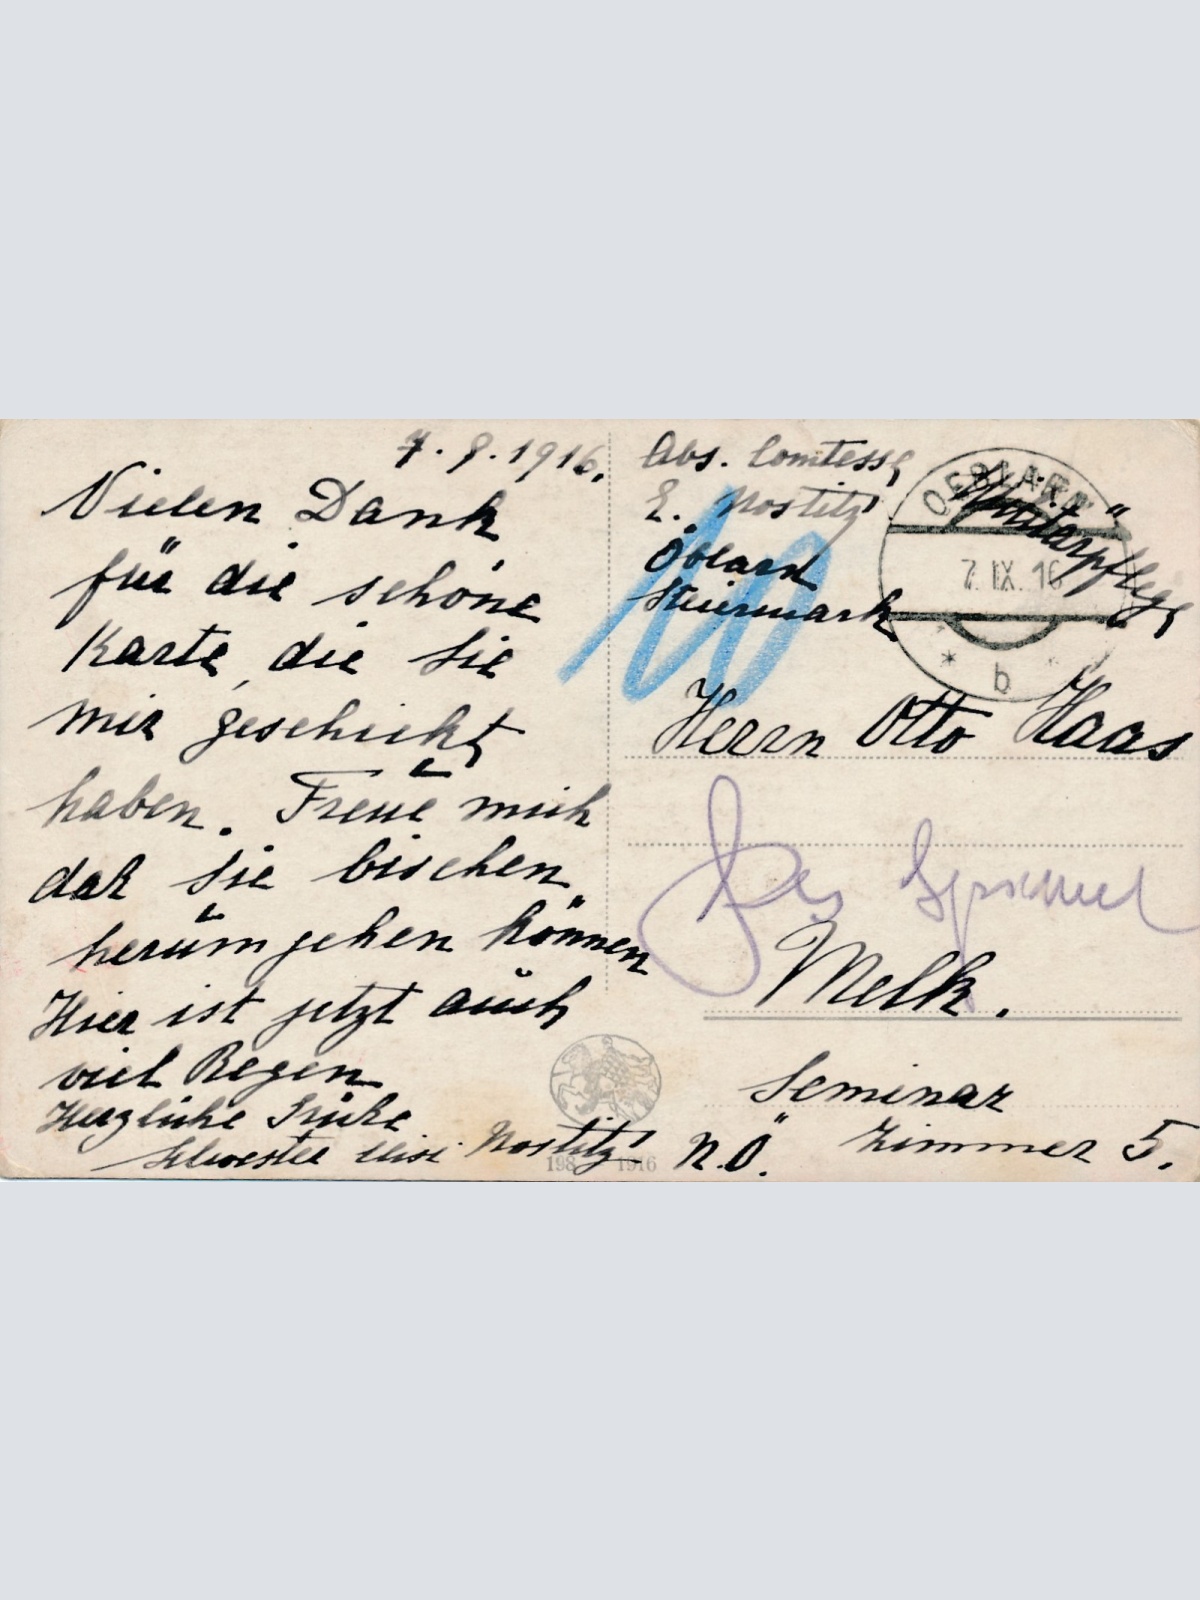 7. 9. 1916.
Vielen Dank
für die schöne
Karte, die Sie
mir geschickt
haben. Freue mich
daß Sie bischen
herumgehen können
Hier ist jetzt auch
viel Regen
Herzliche Grüße
Schwester Nostitz
198 1916
Abs. Comtesse
E. Nostitz
Öblarn
Steiermark
OEBLARN
7. IX. 16
b
10
Herrn Otto Haas
Melk.
Seminar
N.Ö. Zimmer 5.